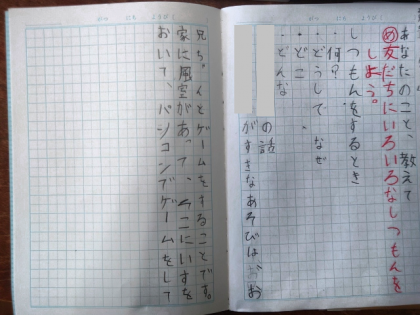 あなたのこと、教えて
め友だちにいろいろなしつもんを
しよう。
しつもんをするとき
・何?
・どうして なぜ
・どこ
・どんな
の話
がすきなあそびは、お
兄ち。んとゲームをすることです。
家に風空があって、そこにいすを
おいて、パソコンでゲームをして